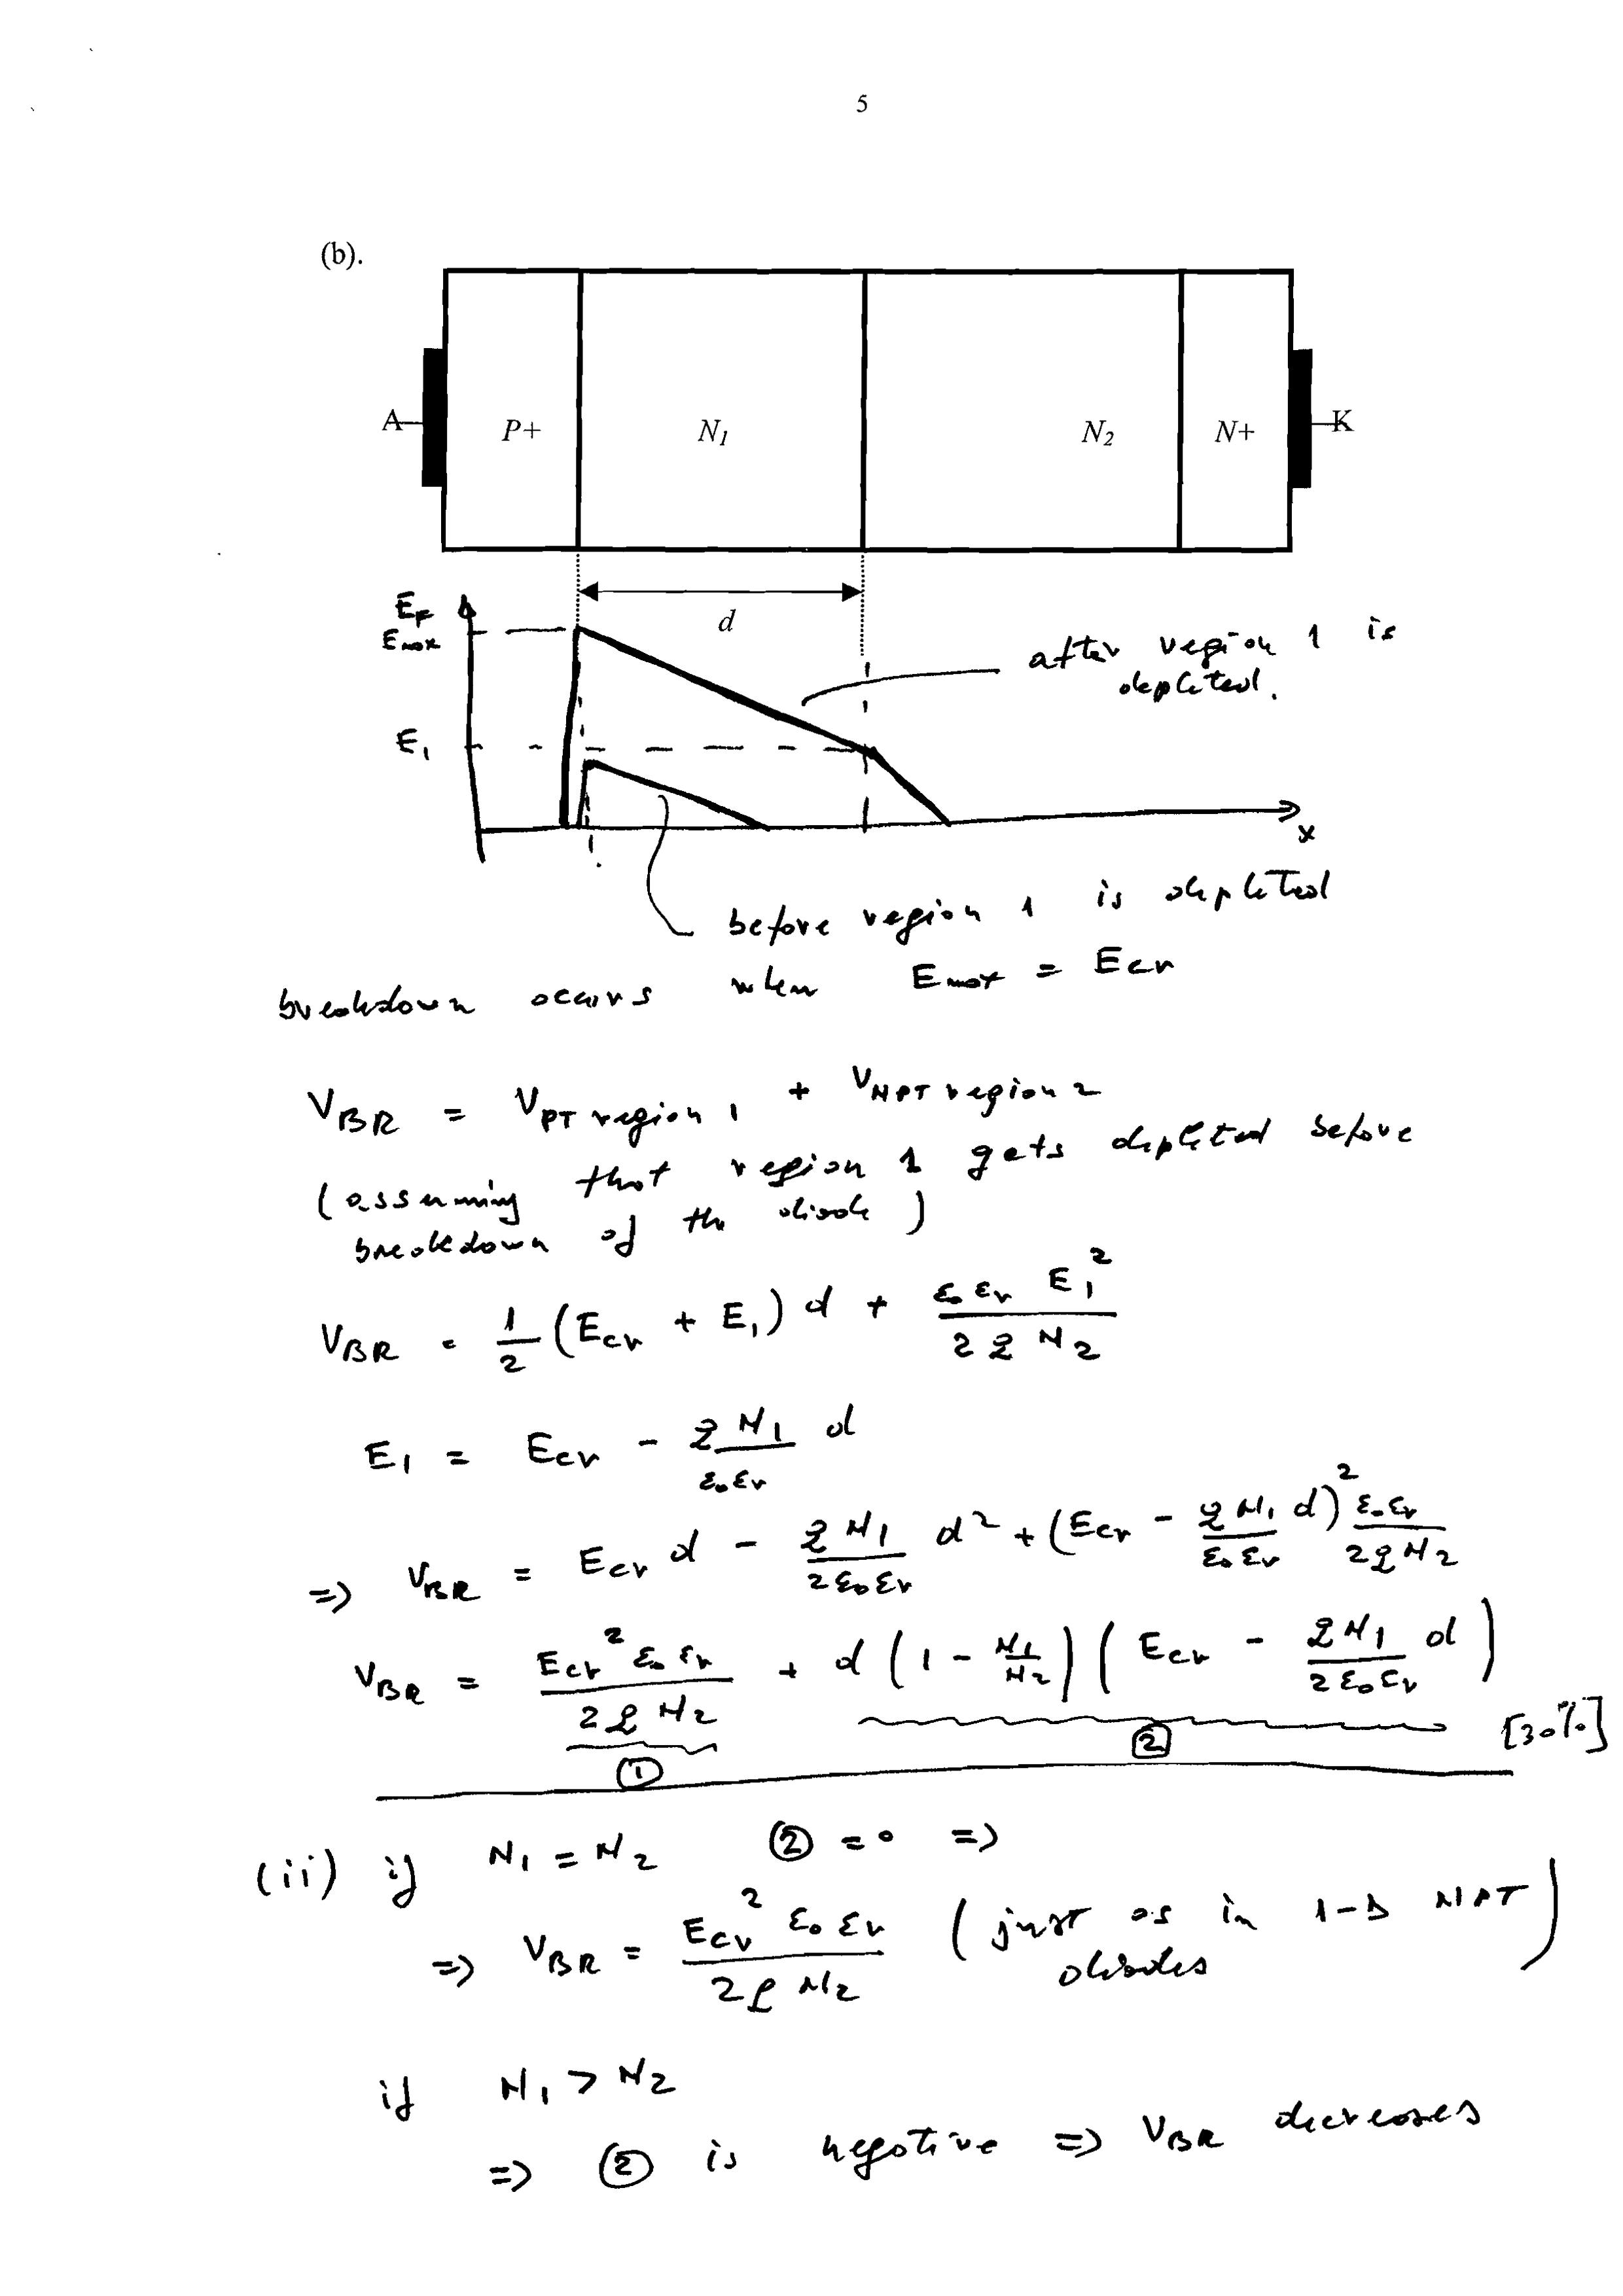 5
(b).
A P+ N₁ N₂ N+ K
d
E_F
E_max
E₁
after region 1 is
depleted.
x
before region 1 is depleted
breakdown occurs when E_max = E_cr
V_BR = V_PT region 1 + V_NPT region 2
(assuming that region 1 gets depleted before
breakdown of the diode)
V_BR = 1/2 (E_cr + E₁) d + ε₀ εr E₁² / 2 q N₂
E₁ = E_cr - q N₁ / ε₀ εr d
=> V_BR = E_cr d - q N₁ / 2 ε₀ εr d² + (E_cr - q N₁ / ε₀ εr d)² ε₀ εr / 2 q N₂
V_BR = E_cr² ε₀ εr / 2 q N₂ + d (1 - N₁/N₂) (E_cr - q N₁ / 2 ε₀ εr d)
① ② [30%]
(ii) if N₁ = N₂ ② = 0 =>
=> V_BR = E_cr² ε₀ εr / 2 q N₂ (just as in 1-D NPT
diodes)
if N₁ > N₂
=> ② is negative => V_BR decreases